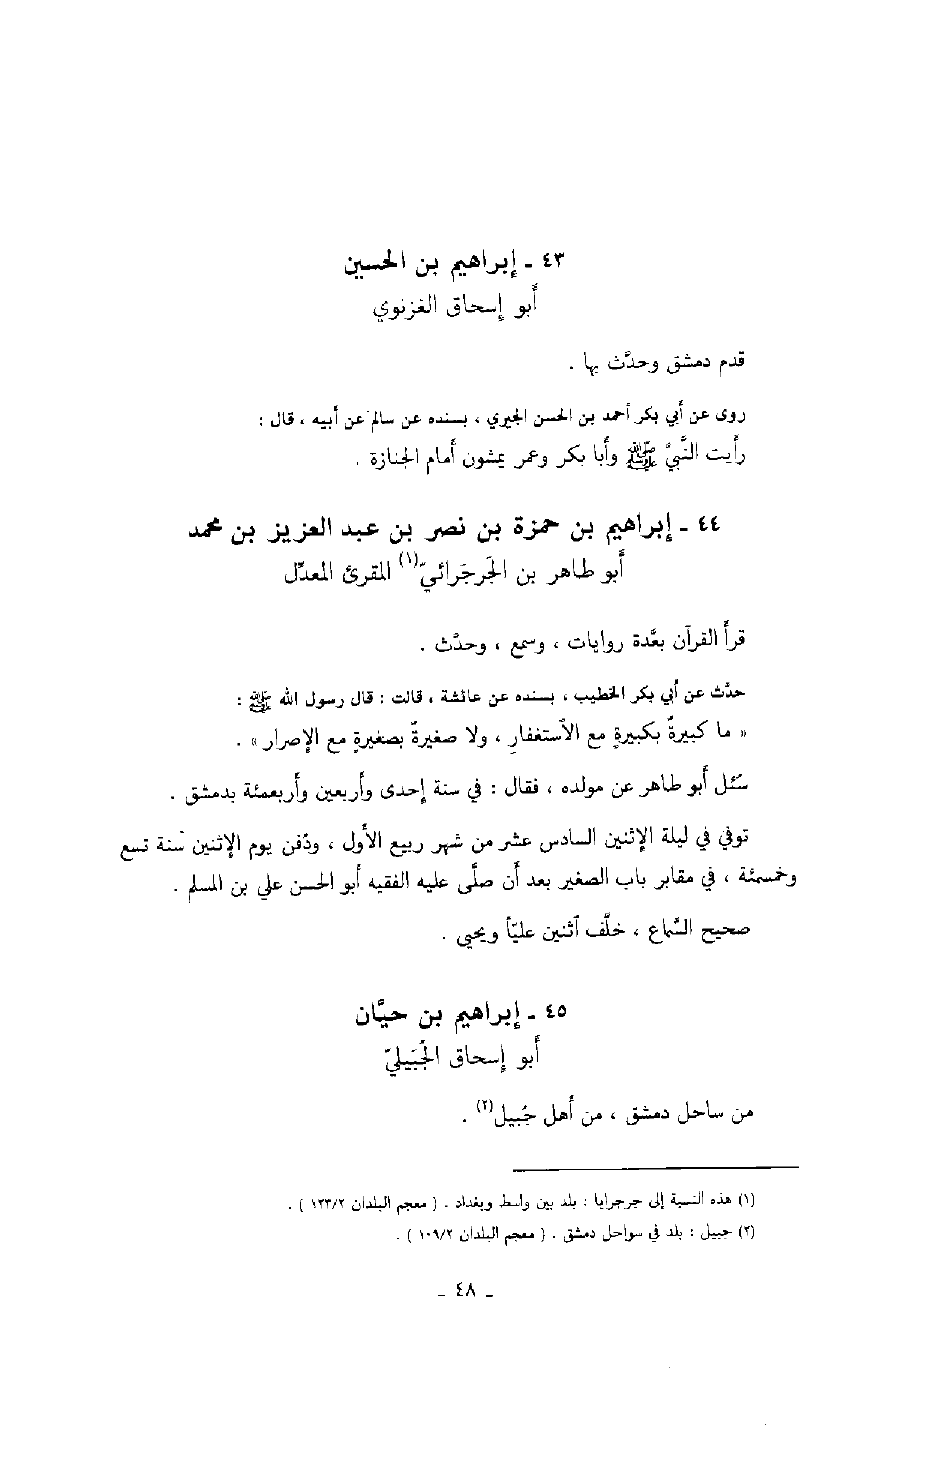 ٤٣ ـ إبراهيم بن الحسين
أبو إسحاق الغزنوي
قدم دمشق وحدَّث بها .
روى عن أبي بكر أحمد بن الحسن الحيري ، بسنده عن سالم عن أبيه ، قال :
رأيت النَّبيَّ ﷺ وأبا بكر وعمر يمشون أمام الجنازة .
٤٤ ـ إبراهيم بن حمزة بن نصر بن عبد العزيز بن محمد
أبو طاهر بن الجَرجَرائيّ(١) المقرئ المعدّل
قرأ القرآن بعَّدة روايات ، وسمع ، وحدَّث .
حدَّث عن أبي بكر الخطيب ، بسنده عن عائشة ، قالت : قال رسول الله ﷺ :
« ما كبيرةٌ بكبيرةٍ مع الاُستغفارِ ، ولا صغيرةٌ بصغيرةٍ مع الإصرار » .
سُئل أبو طاهر عن مولده ، فقال : في سنة إحدى وأربعين وأربعمئة بدمشق .
توفي في ليلة الإثنين السادس عشر من شهر ربيع الأول ، ودُفن يوم الإثنين سنة تسع
وخمسمئة ، في مقابر باب الصغير بعد أن صلَّى عليه الفقيه أبو الحسن علي بن المسلم .
صحيح السَّماع ، خلَّف آثنين عليّاً ويحيى .
٤٥ ـ إبراهيم بن حيَّان
أبو إسحاق الجُبَيليّ
من ساحل دمشق ، من أهل جُبيل(٢) .
(١) هذه النسبة إلى جرجرايا : بلد بين واسط وبغداد . ( معجم البلدان ١٢٣/٢ ) .
(٢) جبيل : بلد في سواحل دمشق . ( معجم البلدان ١٠٩/٢ ) .
ـ ٤٨ ـ